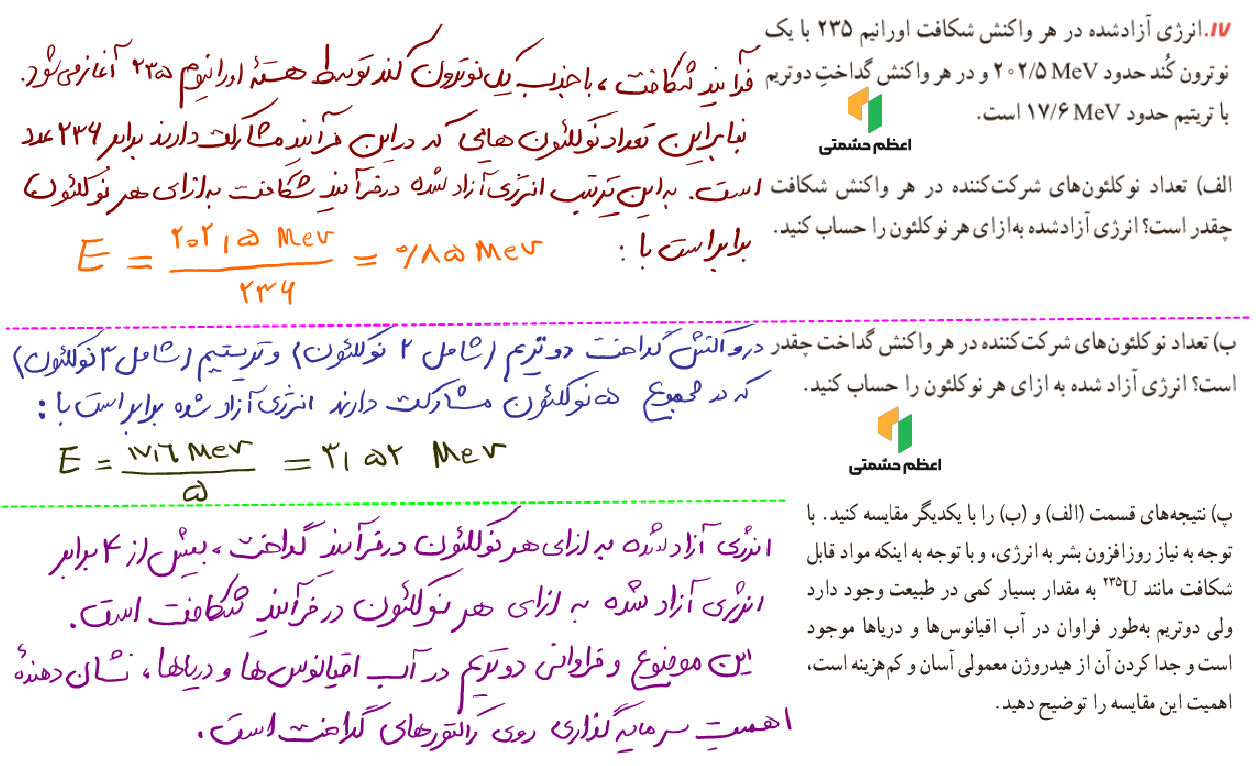 ۱۷. انرژی آزادشده در هر واکنش شکافت اورانیم ۲۳۵ با یک
نوترون کُند حدود ۲۰۲/۵ MeV و در هر واکنش گداختِ دوتریم
با تریتیم حدود ۱۷/۶ MeV است.
اعظم حشمتی
الف) تعداد نوکلئون‌های شرکت‌کننده در هر واکنش شکافت
چقدر است؟ انرژی آزادشده به‌ازای هر نوکلئون را حساب کنید.
فرآیند شکافت، با جذب یک نوترون کند توسط هستهٔ اورانیوم ۲۳۵ آغاز می‌شود.
بنابراین تعداد نوکلئون هایی که در این فرآیند مشارکت دارند برابر ۲۳۶ عدد
است. به این ترتیب انرژی آزاد شده در فرآیند شکافت به ازای هر نوکلئون
برابر است با :
E = ۲۰۲,۵ Mev / ۲۳۶ = ۰/۸۵ Mev
ب) تعداد نوکلئون‌های شرکت‌کننده در هر واکنش گداخت چقدر
است؟ انرژی آزاد شده به ازای هر نوکلئون را حساب کنید.
اعظم حشمتی
در واکنش گداخت دوتریم (شامل ۲ نوکلئون) و تریتیم (شامل ۳ نوکلئون)
که در مجموع ۵ نوکلئون مشارکت دارند انرژی آزاد شده برابر است با :
E = ۱۷,۶ Mev / ۵ = ۳,۵۲ Mev
پ) نتیجه‌های قسمت (الف) و (ب) را با یکدیگر مقایسه کنید. با
توجه به نیاز روزافزون بشر به انرژی، و با توجه به اینکه مواد قابل
شکافت مانند ²³⁵U به مقدار بسیار کمی در طبیعت وجود دارد
ولی دوتریم به‌طور فراوان در آب اقیانوس‌ها و دریاها موجود
است و جدا کردن آن از هیدروژن معمولی آسان و کم‌هزینه است،
اهمیت این مقایسه را توضیح دهید.
انرژی آزاد شده به ازای هر نوکلئون در فرآیند گداخت، بیش از ۴ برابر
انرژی آزاد شده به ازای هر نوکلئون در فرآیند شکافت است.
این موضوع و فراوانی دوتریم در آب اقیانوس ها و دریاها، نشان دهندهٔ
اهمیت سرمایه گذاری روی راکتورهای گداخت است.